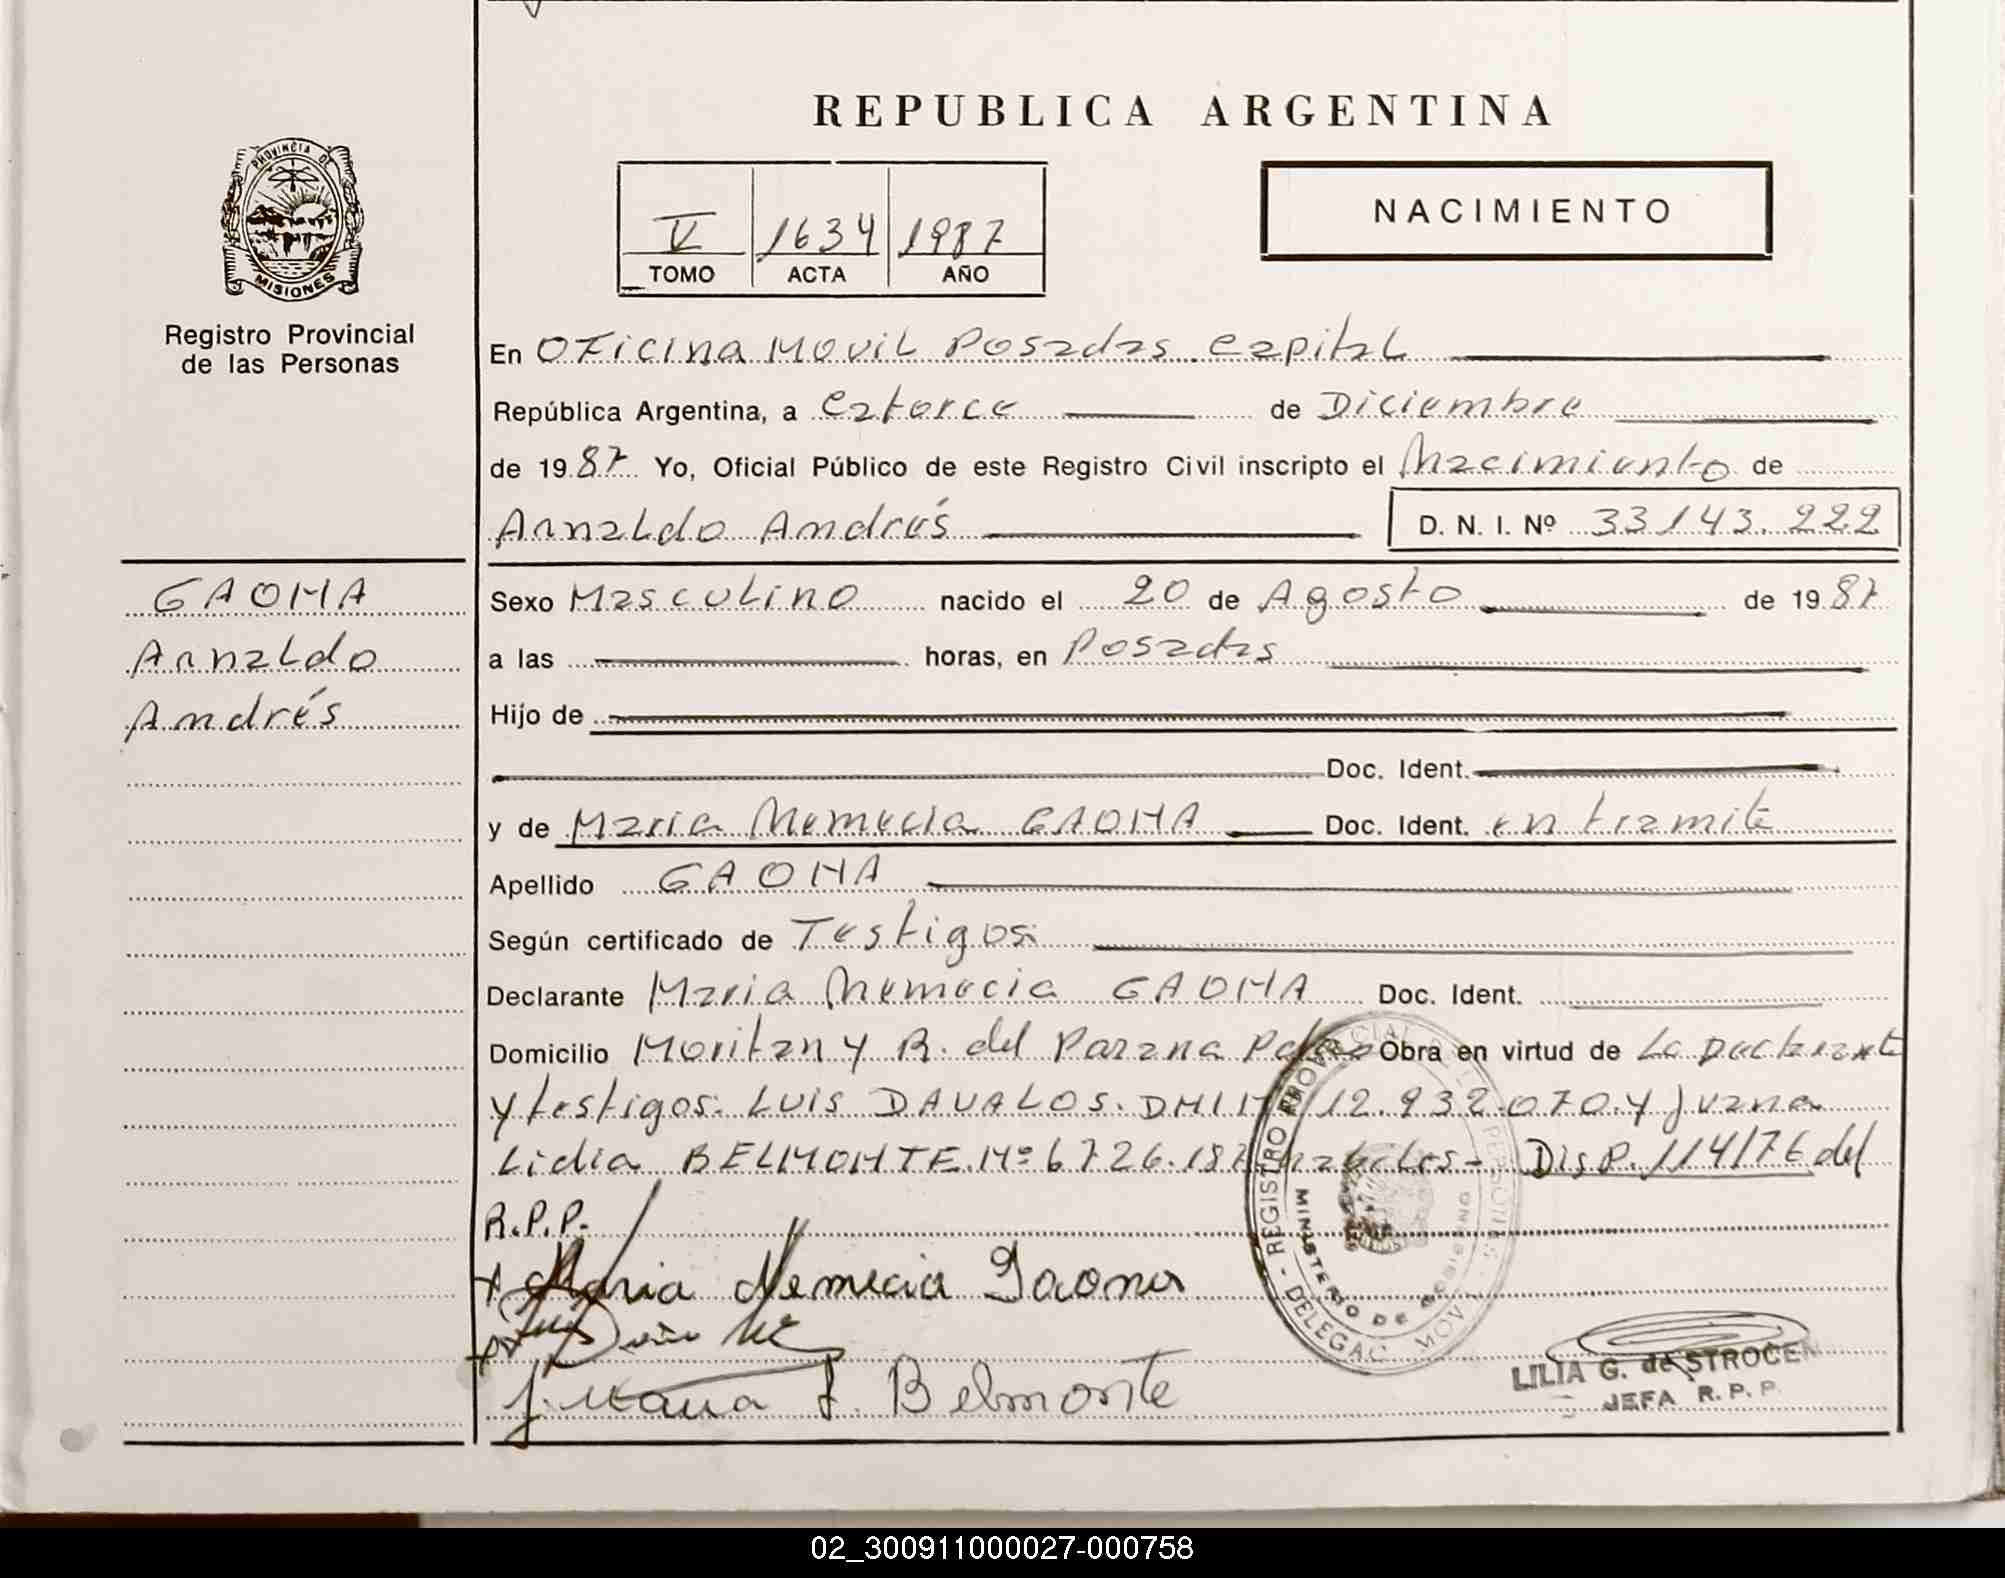 REPUBLICA ARGENTINA
PROVINCIA DE
MISIONES
Registro Provincial
de las Personas
V 1634 1987
TOMO ACTA AÑO
NACIMIENTO
En Oficina Movil Posadas Capital
República Argentina, a catorce de Diciembre
de 1987 Yo, Oficial Público de este Registro Civil inscripto el Nacimiento de
Arnaldo Andrés D. N. I. Nº 33143.222
GAONA
Arnaldo
Andrés
Sexo Masculino nacido el 20 de Agosto de 1987
a las horas, en Posadas
Hijo de
Doc. Ident.
y de Maria Nemecia GAONA Doc. Ident. en tramite
Apellido GAONA
Según certificado de Testigos
Declarante Maria Nemecia GAONA Doc. Ident.
Domicilio Moritan y R. del Parana Obra en virtud de La Declarante
y testigos: LUIS DAVALOS. DNI Nº 12.932.070 y Juana
Lidia BELMONTE. Nº 6726.187 habiles- Disp. 114/76 del
R.P.P.
Maria Nemecia Gaona
Juana L. Belmonte
REGISTRO PROVINCIAL DE LAS PERSONAS
MINISTERIO DE GOBIERNO
DELEGAC. MOV
LILIA G. de STROCEN
JEFA R. P. P.
02_300911000027-000758